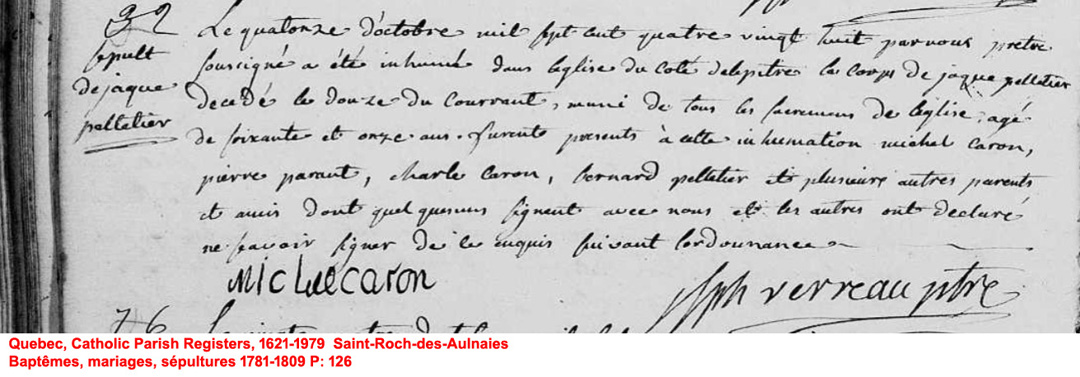 32
sepult
dejaque
pelletier
Le quatorze d'octobre mil sept cent quatre vingt huit par nous pretre
soussigné a été inhumé dans leglise du coté delepitre le corps de jaque pelletier
decedé le douze du courrant, muni de tous les sacremens de leglise, agé
de soixante et onze ans. furent presents à cette inhumation michel caron,
pierre parant, charle caron, bernard pelletier et plusieurs autres parents
et amis dont quelquesuns signent avec nous et les autres ont declaré
ne savoir signer de ce enquis suivant lordonnance
Michel caron
jsph verreau ptre
76
Quebec, Catholic Parish Registers, 1621-1979 Saint-Roch-des-Aulnaies
Baptêmes, mariages, sépultures 1781-1809 P: 126